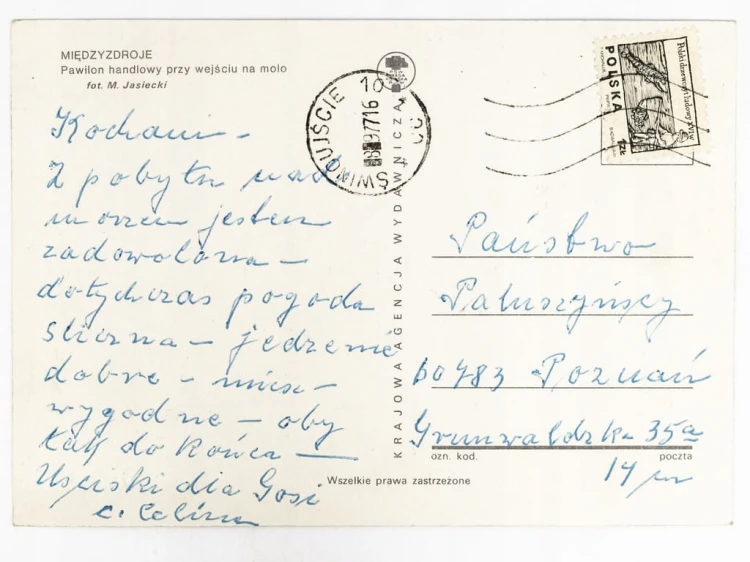 MIĘDZYZDROJE
Pawilon handlowy przy wejściu na molo
fot. M. Jasiecki
Kochani –
Z pobytu nad
morzem jestem
zadowolona –
dotychczas pogoda
śliczna – jedzenie
dobre – miesz–
wygodne – oby
tak do końca –
Uściski dla Gosi
c. Celina
KRAJOWA AGENCJA WYDAWNICZA
ŚWINOUJŚCIE
POLSKA
Polski drzeworyt ludowy XVI w.
1zł
Państwo
Paluszyńscy
60483 Poznań
Grunwaldzka 35a
14 m
ozn. kod.
poczta
Wszelkie prawa zastrzeżone